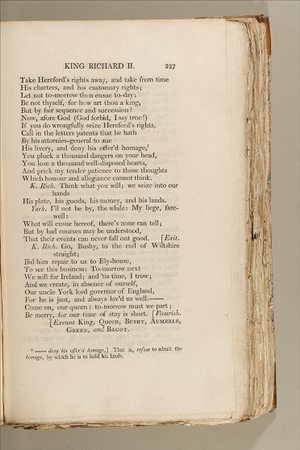 KING RICHARD II. 327
Take Hereford's rights away, and take from time
His charters, and his customary rights;
Let not to-morrow then ensue to-day;
Be not thyself, for how art thou a king,
But by fair sequence and succession?
Now, afore God (God forbid, I say true!)
If you do wrongfully seize Hereford's rights,
Call in the letters patents that he hath
By his attornies-general to sue
His livery, and deny his offer'd homage,
You pluck a thousand dangers on your head,
You lose a thousand well-disposed hearts,
And prick my tender patience to those thoughts
Which honour and allegiance cannot think.
K. Rich. Think what you will; we seize into our
hands
His plate, his goods, his money, and his lands.
York. I'll not be by, the while: My liege, fare-
well:
What will ensue hereof, there's none can tell;
But by bad courses may be understood,
That their events can never fall out good. [Exit.
K. Rich. Go, Bushy, to the earl of Wiltshire
straight;
Bid him repair to us to Ely-house,
To see this business: To-morrow next
We will for Ireland; and 'tis time, I trow;
And we create, in absence of ourself,
Our uncle York lord governor of England,
For he is just, and always lov'd us well.——
Come on, our queen: to-morrow must we part;
Be merry, for our time of stay is short. [Flourish.
[Exeunt King, Queen, BUSHY, AUMERLE,
GREEN, and BAGOT.
—— deny his offer'd homage,] That is, refuse to admit the
homage, by which he is to hold his lands.